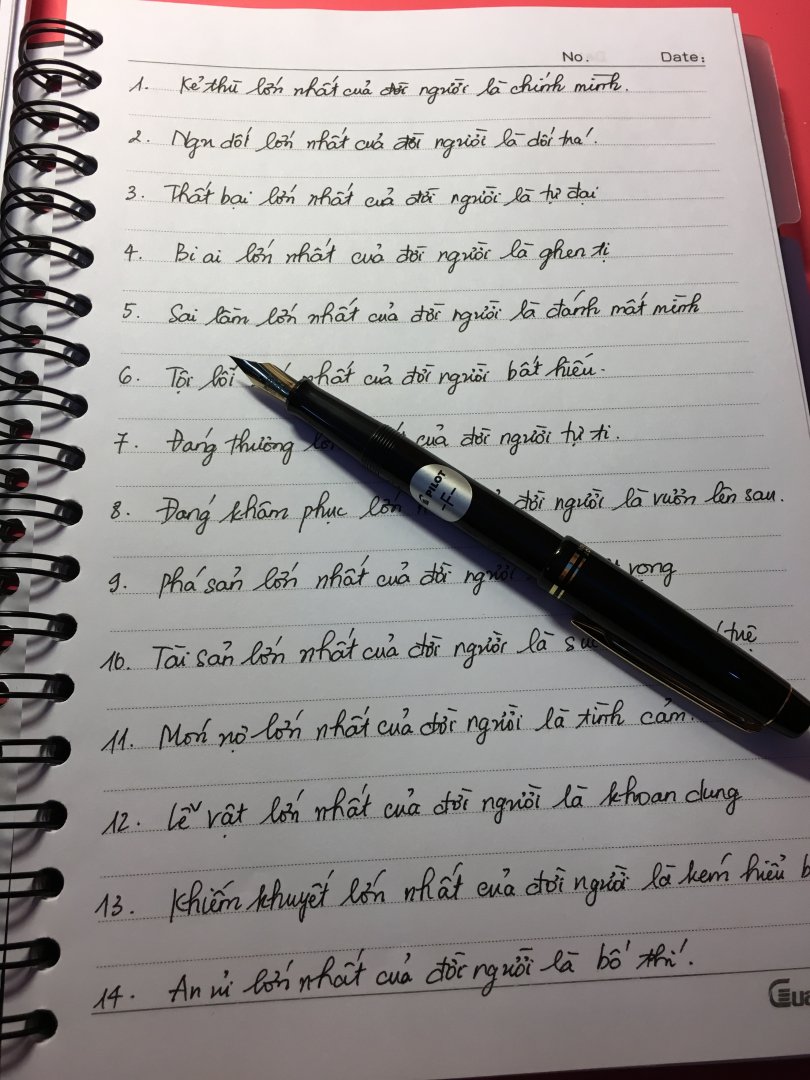 No. Date:
1. Kẻ thù lớn nhất của đời người là chính mình.
2. Ngu dốt lớn nhất của đời người là dối trá.
3. Thất bại lớn nhất của đời người là tự đại
4. Bi ai lớn nhất của đời người là ghen tị
5. Sai lầm lớn nhất của đời người là đánh mất mình
6. Tội lỗi nhất của đời người bất hiếu.
7. Đáng thương của đời người tự ti.
8. Đáng khâm phục lớn đời người là vươn lên sau.
PILOT
-F-
9. Phá sản lớn nhất của đời người vọng
10. Tài sản lớn nhất của đời người là tuệ
11. Món nợ lớn nhất của đời người là tình cảm.
12. Lễ vật lớn nhất của đời người là khoan dung
13. Khiếm khuyết lớn nhất của đời người là kém hiểu b
14. An ủi lớn nhất của đời người là bố thí.